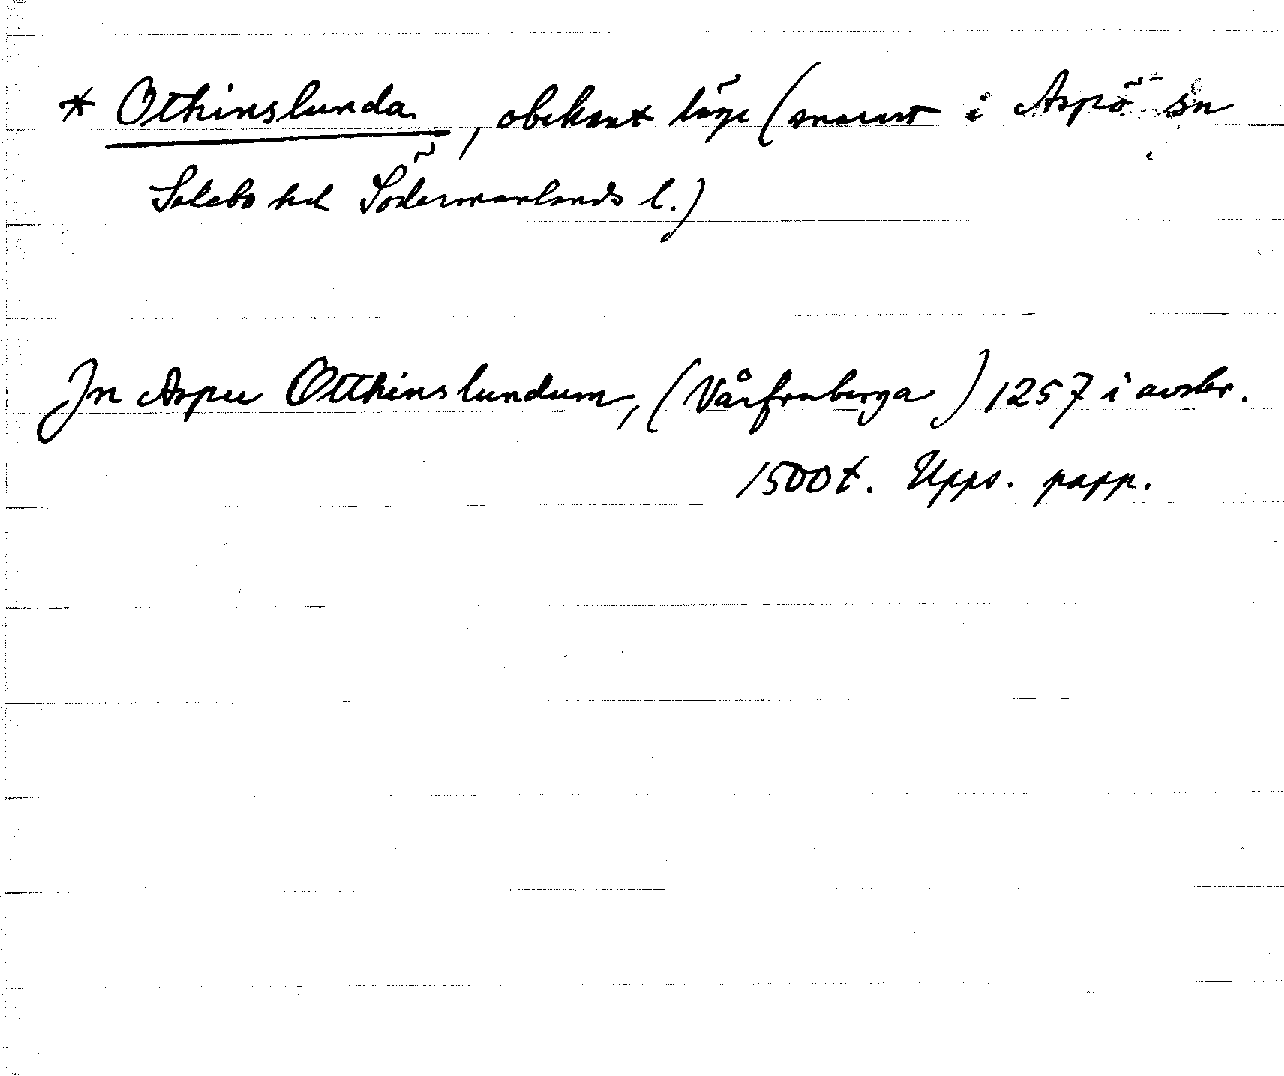 * Othinslunda, obekant läge (snarast i Aspö sn
Selebo hd Södermanlands l.)
In Aspu Otthinslundum, (Vårfruberga) 1257 i avskr.
1500t. Upps. papp.